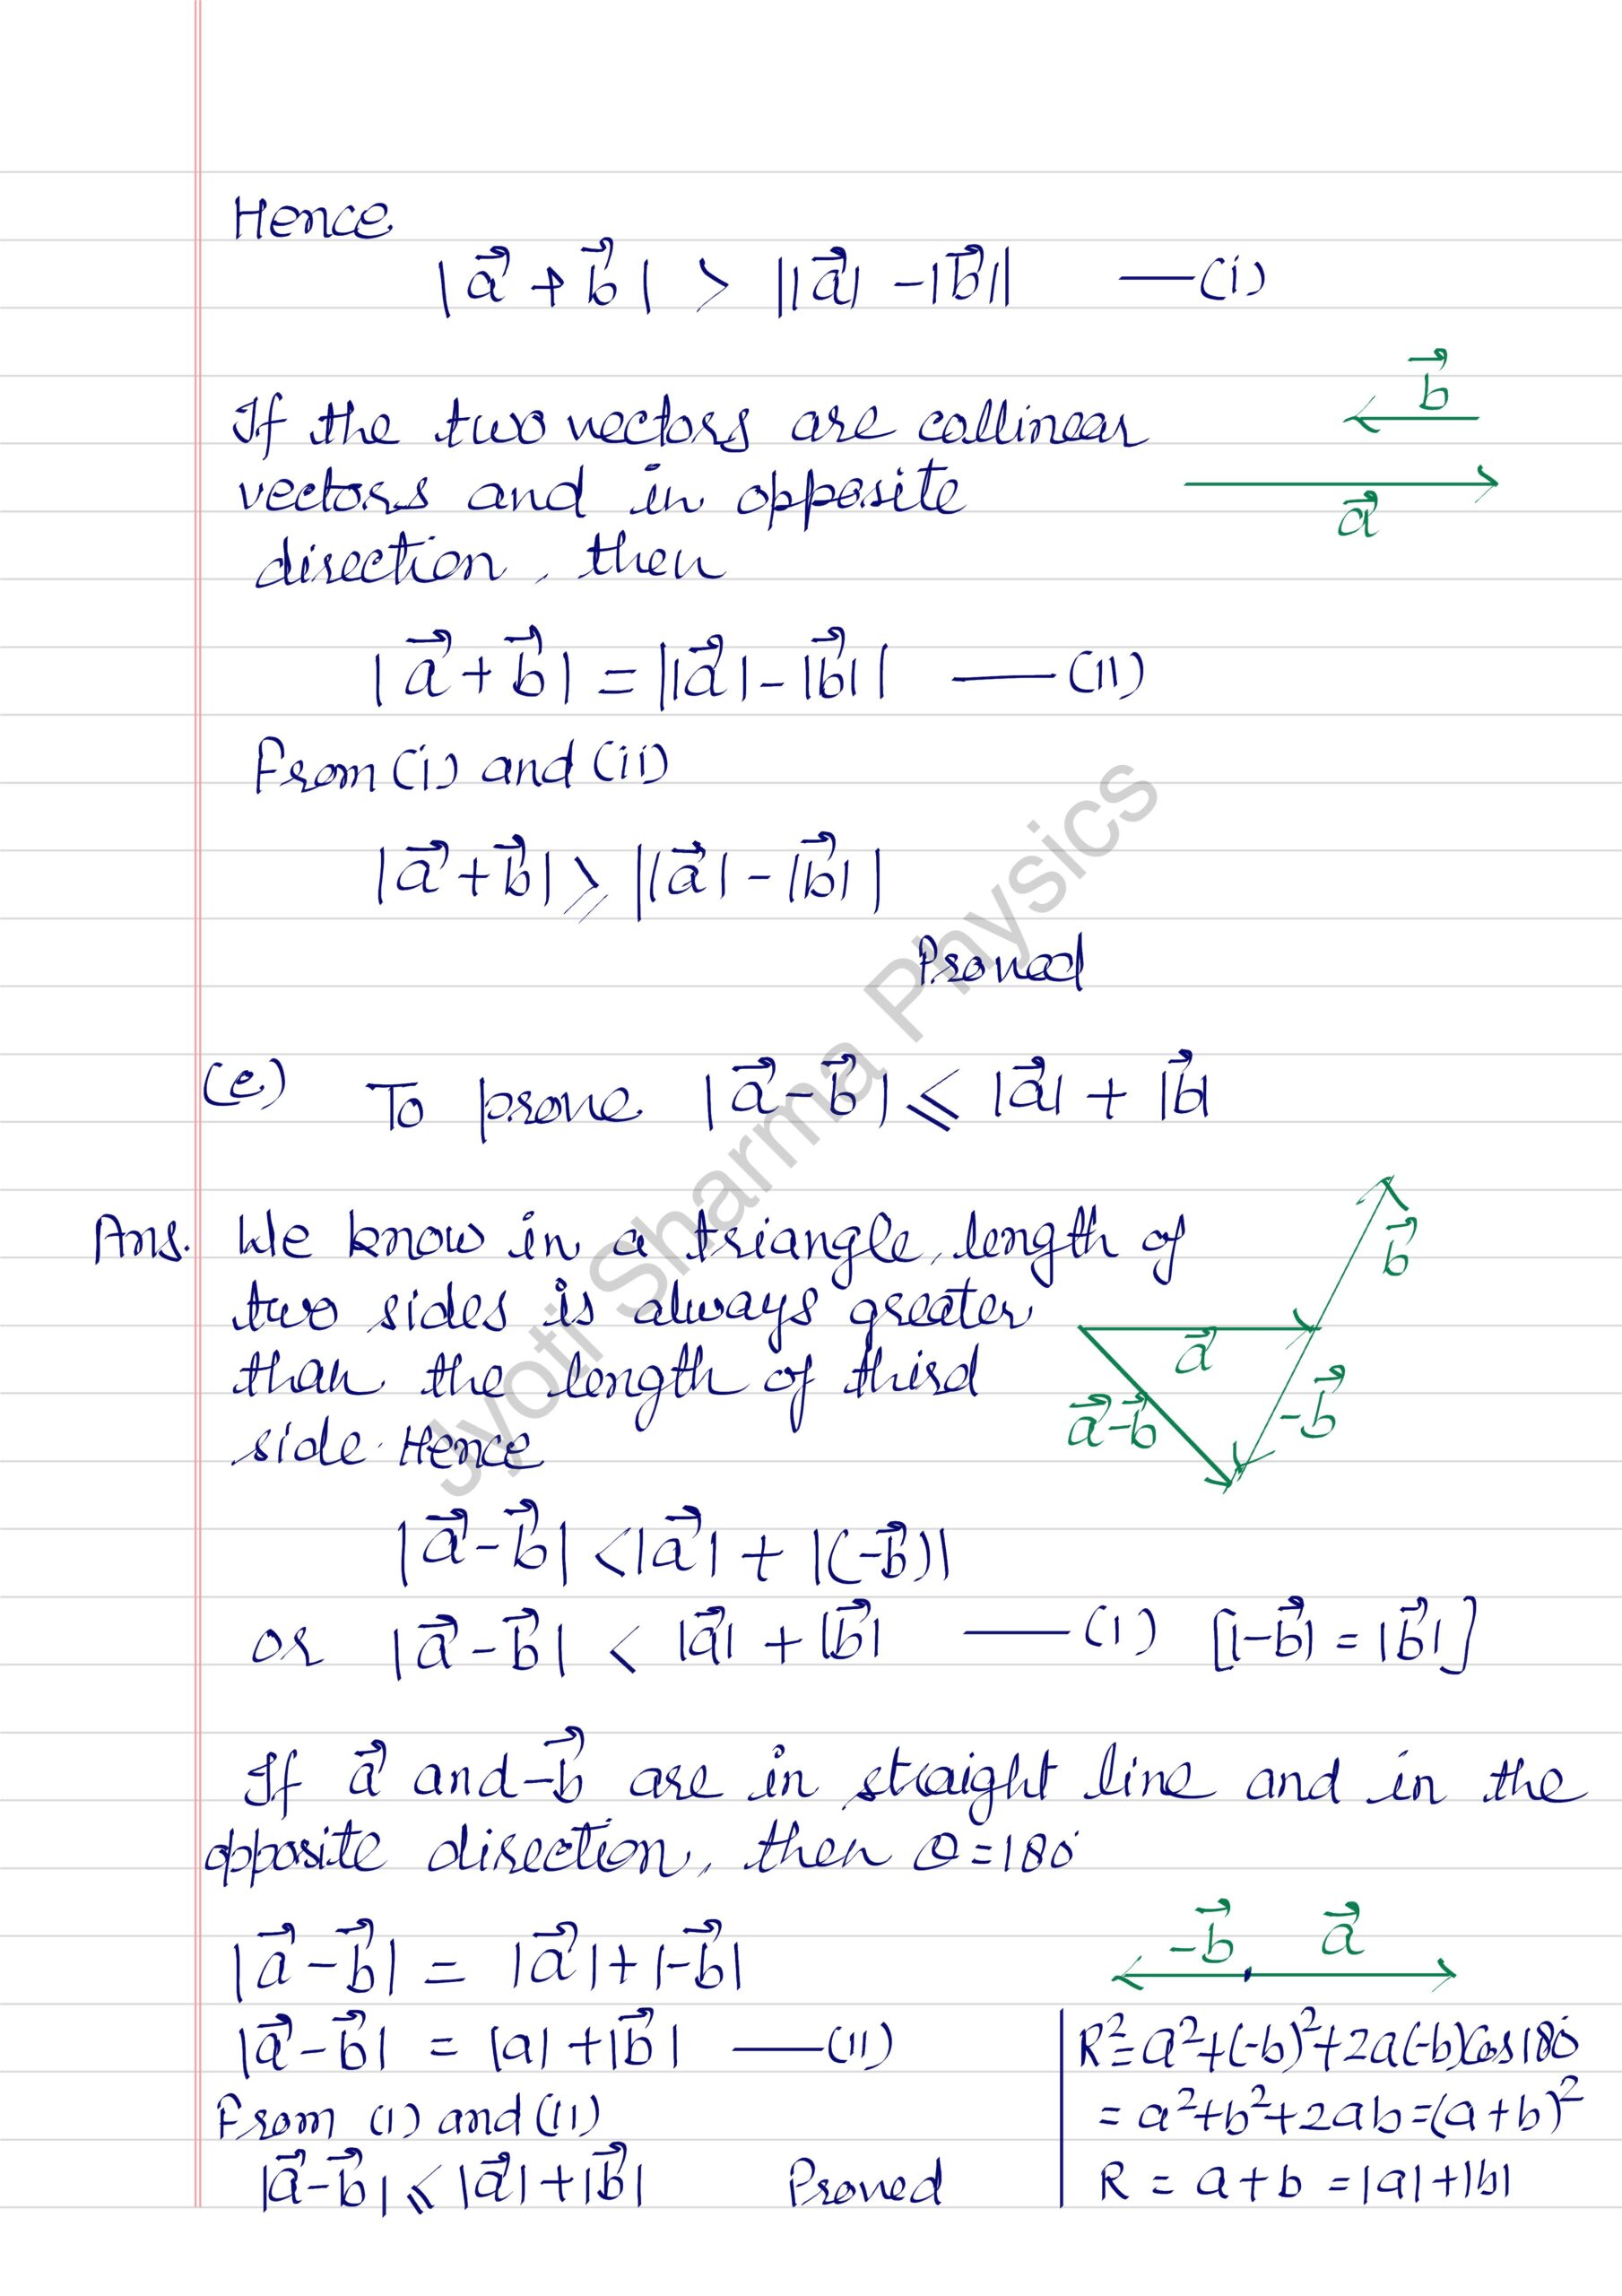 Hence
|a⃗ + b⃗| > ||a⃗| - |b⃗|| —(i)
b⃗
If the two vectors are collinear
vectors and in opposite
a⃗
direction, then
|a⃗ + b⃗| = ||a⃗| - |b⃗|| —(II)
From (i) and (ii)
|a⃗ + b⃗| ⩾ ||a⃗| - |b⃗||
Proved
(c) To prove |a⃗ - b⃗| ⩽ |a⃗| + |b⃗|
Ans. We know in a triangle, length of
b⃗
two sides is always greater
a⃗
than the length of third
a⃗-b⃗
-b⃗
side. Hence
|a⃗ - b⃗| < |a⃗| + |(-b⃗)|
or |a⃗ - b⃗| < |a⃗| + |b⃗| —(I) [|-b⃗| = |b⃗|]
If a⃗ and -b⃗ are in straight line and in the
opposite direction, then θ=180°
-b⃗ a⃗
|a⃗ - b⃗| = |a⃗| + |-b⃗|
|a⃗ - b⃗| = |a| + |b⃗| —(II)
From (I) and (II)
|a⃗ - b⃗| ⩽ |a⃗| + |b⃗| Proved
R²=a²+(-b)²+2a(-b)Cos180°
= a²+b²+2ab=(a+b)²
R = a+b = |a|+|b|
Jyoti Sharma Physics